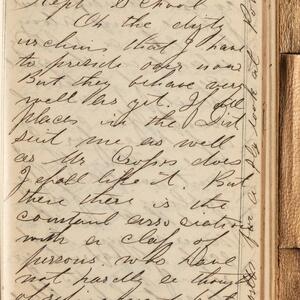 Kept School
Oh the dirty
urchins that I have
to preside over now
But they behave very
well as yet. If all
places in the Dist
suit me as well
as Mr Cropses does
I shall like it. But
then there is the
constant association
with a class of
persons who have
not hardly a thought
of
look at